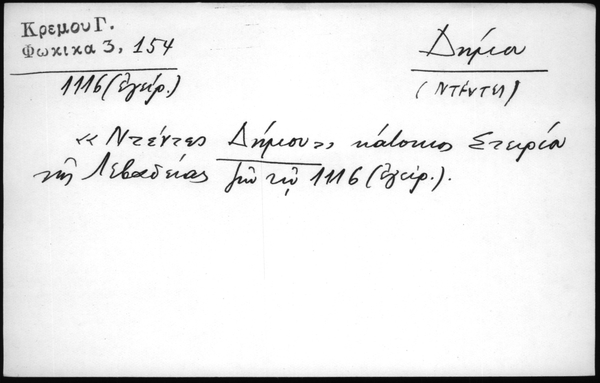 Κρεμου Γ.
Φωκικα 3, 154
1116 (ἐγείρ.)
Δήμου
(Ντέντες)
« Ντέντες Δήμου», κάτοικος Στειρίου
τῆς Λεβαδείας ζῶν τῷ 1116 (ἐγείρ.).